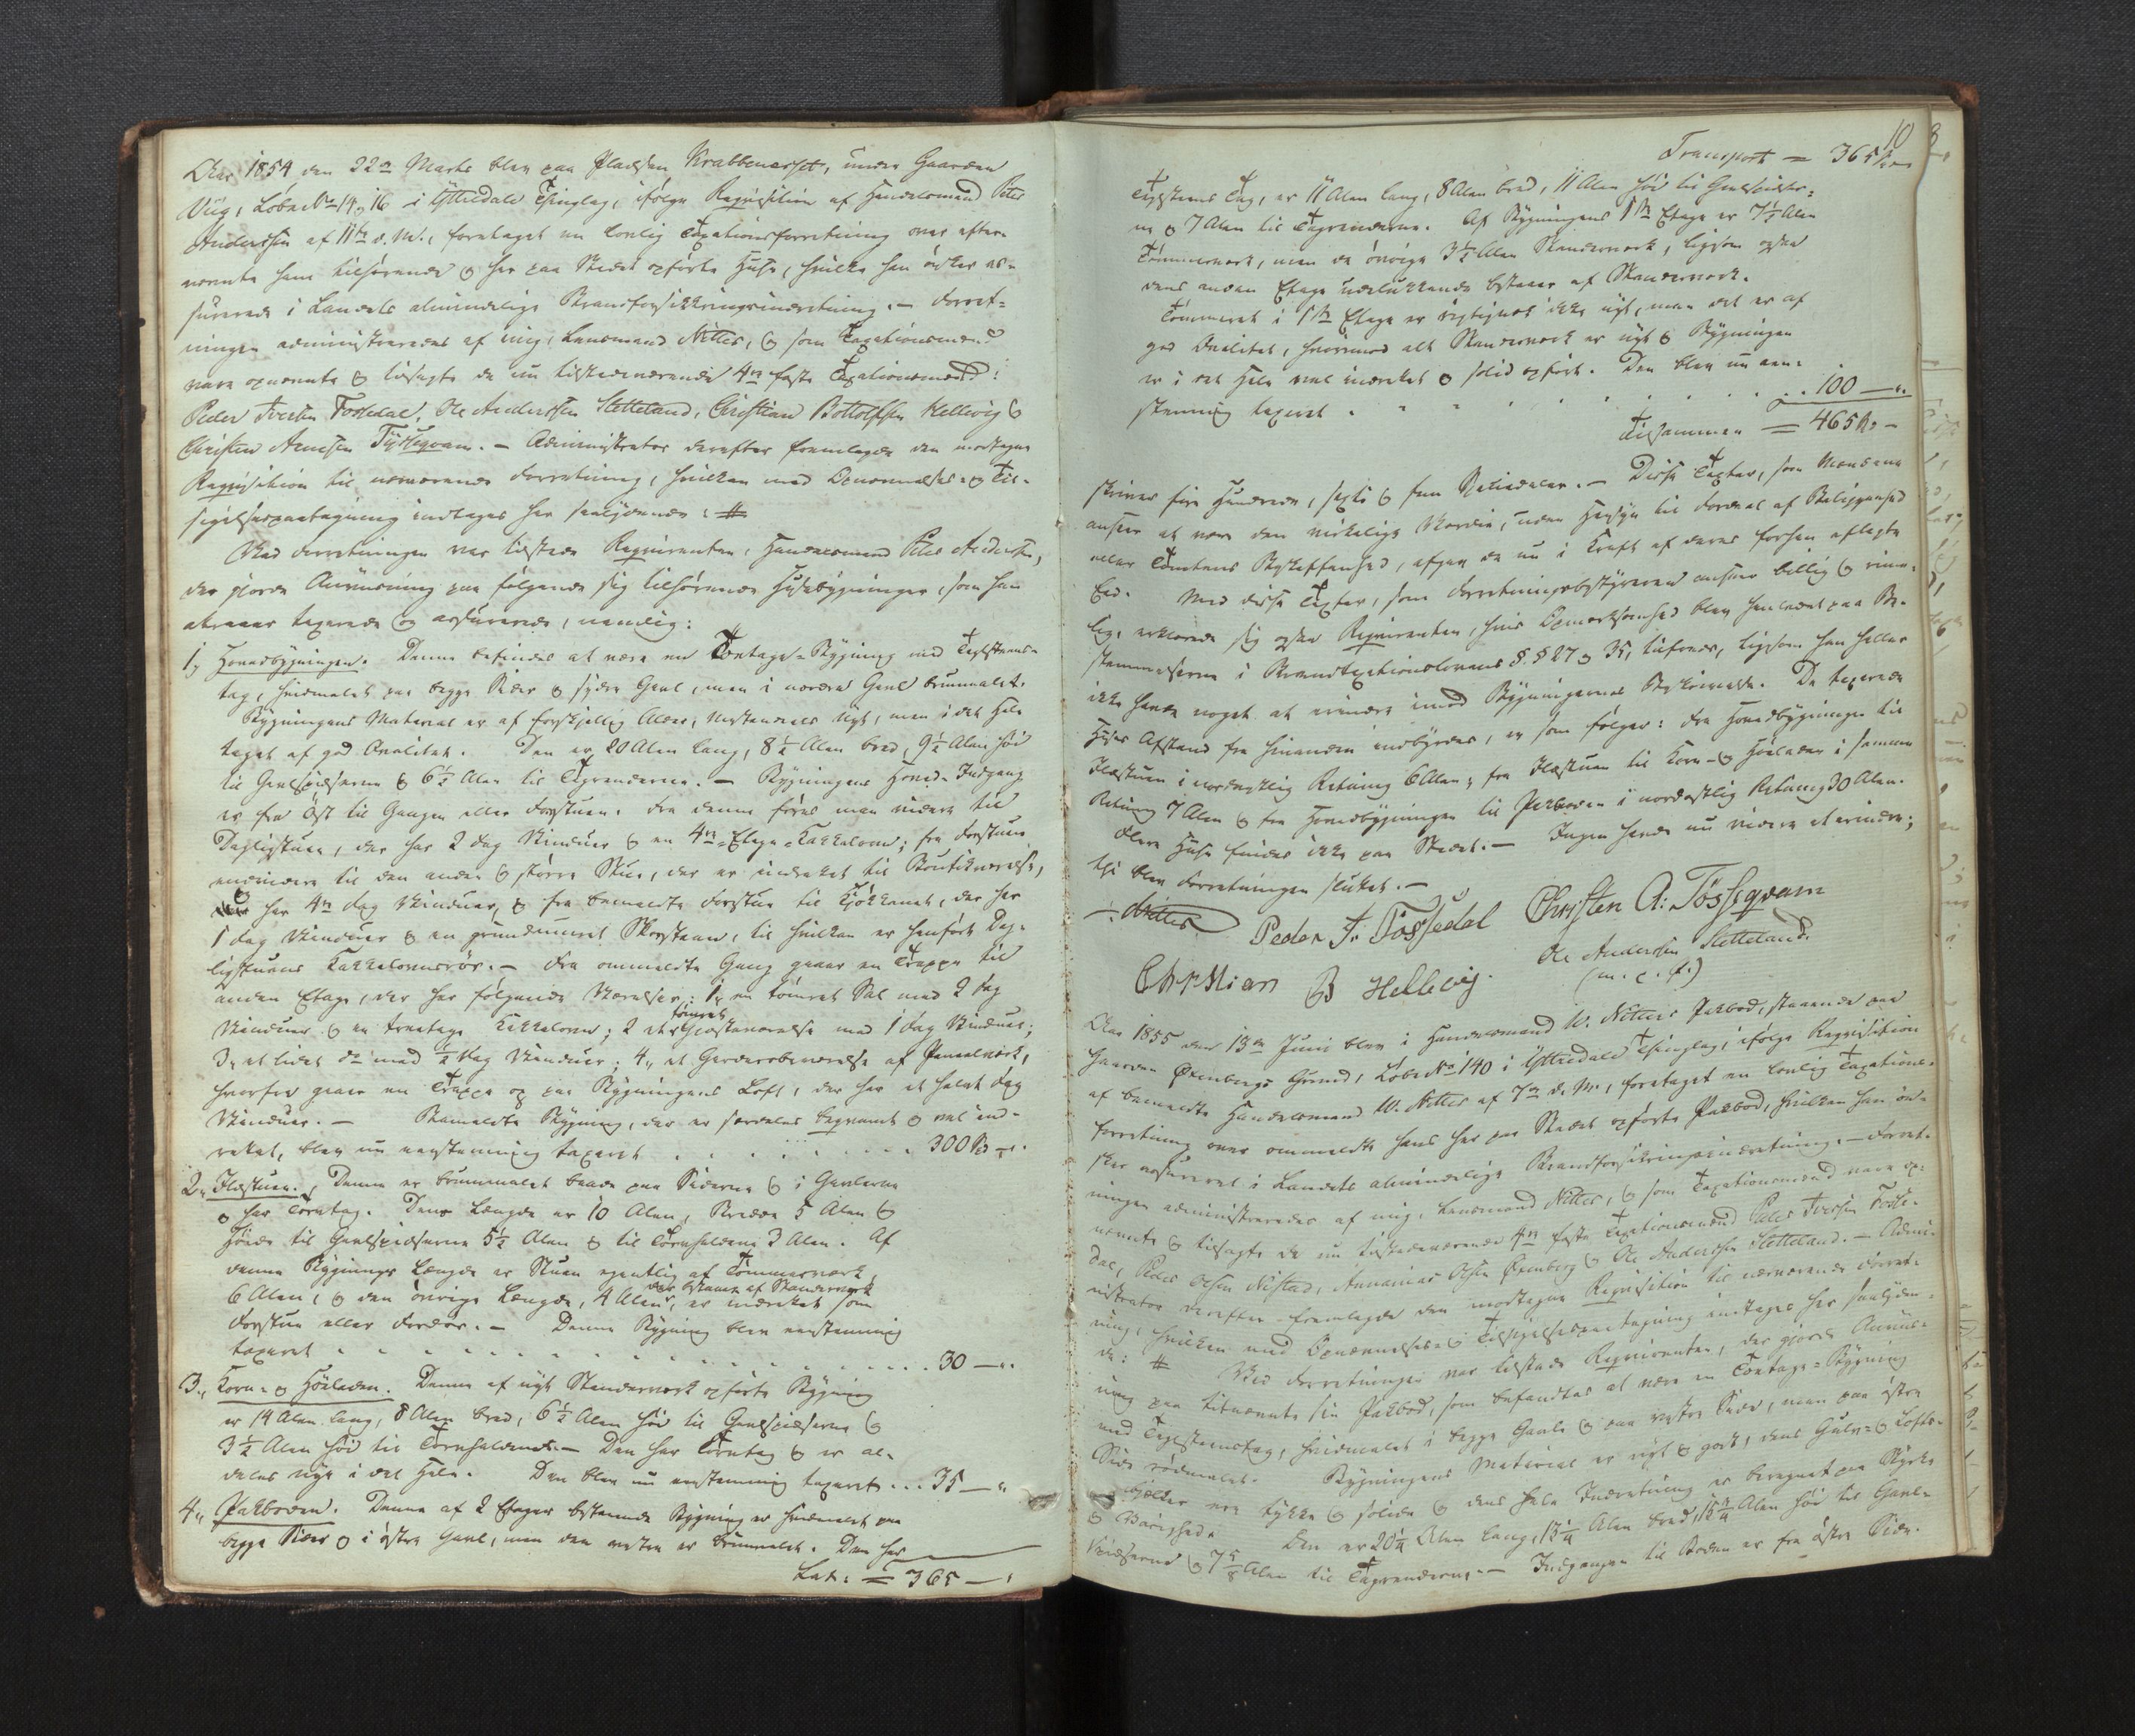 Aar 1854 den 22de Marts blev paa Pladsen Krabbeneset, under Gaarden
Viig, Løbe No 14 og 16 i Yttredals Thinglag, ifølge Requisition af Handelsmand Peter
Anderssen af 11te d. M., foretaget en lovlig Taxationsforretning over efter-
nevnte ham tilhørende og her paa Stedet opførte Huse, hvilke han ønsker as-
surerede i Landets almindelige Brandforsikkringsindretning. – Forret-
ningen administreredes af mig, Lensmand Nitter, og som Taxationsmænd
vare opnevnte og tilsagte de nu tilstedeværende 4re faste Taxationsmænd:
Peder Iversen Fossedal, Ole Anderssen Sletteland, Christian Bottolfsen Hellevig og
Christen Arnesen Tysseqvam. – Administrator derefter fremlagde den modtagne
Requisition til nærværende Forretning, hvilken med Opnevnelses- og Til-
sigelsespaategning indtages her saalydende: #
Ved Forretningen var tilstede Requirenten, Handelsmand Peter Anderssen,
der gjorde Anviisning paa følgende sig tilhørende Husebygninger, som han
attraaer taxerede og assurerede, nemlig:
1, Hovedbygningen. Denne befindes at være en Toetages-Bygning med Teglsteens-
tag, hvidmalet paa begge Sider og søndre Gavl, men i nordre Gavl bruunmalet.
Bygningens Material er af forskjellig Alder, mestendeels nyt, men i det Hele
taget af god Qvalitet. Den er 20 Alen lang, 8½ Alen bred, 9½ Alen høi
til Gavlspidserne og 6½ Alen til Tagrenderne. – Bygningens Hoved-Indgang
er fra Øst til Gangen eller Forstuen. Fra denne føres man videre til
Dagligstuen, der har 2 Fag Vinduer og en 4re-Etages-Kakkelovn; fra Forstuen
endvidere til den anden og større Stue, der er indrettet til Boutikværelse,
og har 4re Fag Vinduer, og fra bemeldte Forstue til Kjøkkenet, der har
1 Fag Vinduer og en grundmuret Skorsteen, til hvilken er henført Dag-
ligstuens Kakkelovnsrør. – Fra ommeldte Gang gaaer en Trappe til
anden Etage, der har følgende Værelser: 1, en tømret Sal med 2 Fag
Vinduer og en treetages Kakkelovn; 2 et tømret Gjæsteværelse med 1 Fag Vinduer;
3, et lidet do med ½ Fag Vinduer; 4, et Garderobeværelse af Paneelværk,
hvorfra gaaer en Trappe op paa Bygningens Loft, der har et halvt Fag
Vinduer. – Bemeldte Bygning, der er særdeles beqvemt og vel ind-
rettet, blev nu eenstemmig taxeret . . . . . . . . 300 Spd –".
2, Ildstuen. Denne er bruunmalet baade paa Siderne og i Gavlerne
og har Torvtag. Dens Længde er 10 Alen, Bredde 5 Alen og
Høide til Gavlspidserne 5½ Alen og til Torvhaldene 3 Alen. Af
denne Bygnings Længde er Stuen egentlig af Tømmerværk
6 Alen, og den øvrige Længde, 4 Alen, der bestaaer af Stenderværk, er indrettet som
Forstue eller Fordør. – Denne Bygning blev eenstemmig
taxeret . . . . . . . . . . . . . . 30 – ".
3, Korn- og Høeladen. Denne af nyt Stenderværk opførte Bygning
er 14 Alen lang, 8 Alen bred, 6½ Alen høi til Gavlspidserne og
3½ Alen høi til Torvhaldene. – Den har Torvtag og er al-
deles nye i det Hele. Den blev nu eenstemmig taxeret . . . 35 – "
4, Pakboden. Denne af 2 Etager bestaaende Bygning er hvidmalet paa
begge Sider og i østre Gavl, men den vestre er bruunmalet. Den har
Lat: = 365 – "
10
Transport = 365 Spd –
Teglsteens Tag, er 11 Alen lang, 8 Alen bred, 11 Alen høi til Gavlspidser-
ne og 7 Alen til Tagrenderne. Af Bygningens 1ste Etage er 7½ Alen
Tømmerværk, men de øvrige 3½ Alen Stenderværk, ligesom ogsaa
dens anden Etage udelukkende bestaaer af Stenderværk.
Tømmeret i 1ste Etage er rigtignok ikke nyt, men det er af
god Qvalitet, hvorimod alt Stenderværk er nyt og Bygningen
er i det Hele vel indrettet og solid opført. Den blev nu een-
stemmig taxeret . . . . . . . . . 100 – ".
Tilsammen = 465 Spd –
skriver fire Hundrede, sexti og fem Speciedaler. – Disse Taxter, som Mændene
ansees at være den virkelige Værdie, uden Hensyn til Fordeel af Beliggenhed
eller Tomtens Beskaffenhed, afgav de nu i Kraft af deres forhen aflagte
Eed. Med disse Taxter, som Forretningsbestyreren ansaae billig og rime-
lig, erklærede sig ogsaa Requirenten, hvis Opmærksomhed blev henledet paa Be-
stemmelserne i Brandtaxationslovens §.§ 27 og 35, tilfreds, ligesom han heller
ikke havde noget at erindre imod Bygningernes Beskrivelse. De taxerede
Huses Afstand fra hinanden indbyrdes, er som følger: fra Hovedbygningen til
Ildstuen i nordvestlig Retning 6 Alen, fra Ildstuen til Korn- og Høeladen i samme
Retning 7 Alen og fra Hovedbygningen til Pakboden i nordostlig Retning 30 Alen.
Flere Huse findes ikke paa Stedet. – Ingen havde nu videre at erindre;
thi blev Forretningen sluttet. –
Nitter Peder I. Fossedal Christen A: Tössqvam
Christian B Hellevig. Ole Anderssen Sletteland.
(m. p. P.)
Aar 1855 den 13de Juni blev i Handelsmand W. Nitters Pakbod, staaende paa
Gaarden Øxenbergs Grund, Løbe No 140 i Yttredals Thinglag, ifølge Requisition
af bemeldte Handelsmand W. Nitter af 7de d. M., foretaget en lovlig Taxations-
forretning over ommeldte hans her paa Stedet opførte Pakbod, hvilken han øn-
sker assureret i Landets almindelige Brandforsikringsindretning. – Forret-
ningen administreredes af mig, Lensmand Nitter, og som Taxationsmænd vare op-
nevnte og tilsagte de nu tilstedeværende 4re faste Taxationsmænd Peder Iversen Fosse-
dal, Peder Olsen Nistad, Annanias Olsen Øxenberg og Ole Anderssen Sletteland. – Admi-
nistrator derefter fremlagde den modtagne Requisition til nærværende Forret-
ning, hvilken med Opnævnelses- og Tilsigelsespaategning indtages her saalyden-
de: # Ved Forretningen var tilstede Requirenten, der gjorde Anviis-
ning paa bemeldte sin Pakbod, som befandtes at være en Toetages-Bygning
med Teglsteenstag, hvidmalet i begge Gavle og paa vestre Side, men paa østre
Side rødmalet. Bygningens Material er nyt og godt, dens Gulv- og Lofts-
bjelker ere tykke og solide og dens hele Indretning er beregnet paa Styrke
og Varighed. Den er 20¼ Alen lang, 13¼ Alen bred, 13¾ Alen høi til Gavl-
spidserne og 7⅝ Alen til Tagrenderne. – Indgangen til Boden er fra østre Side.